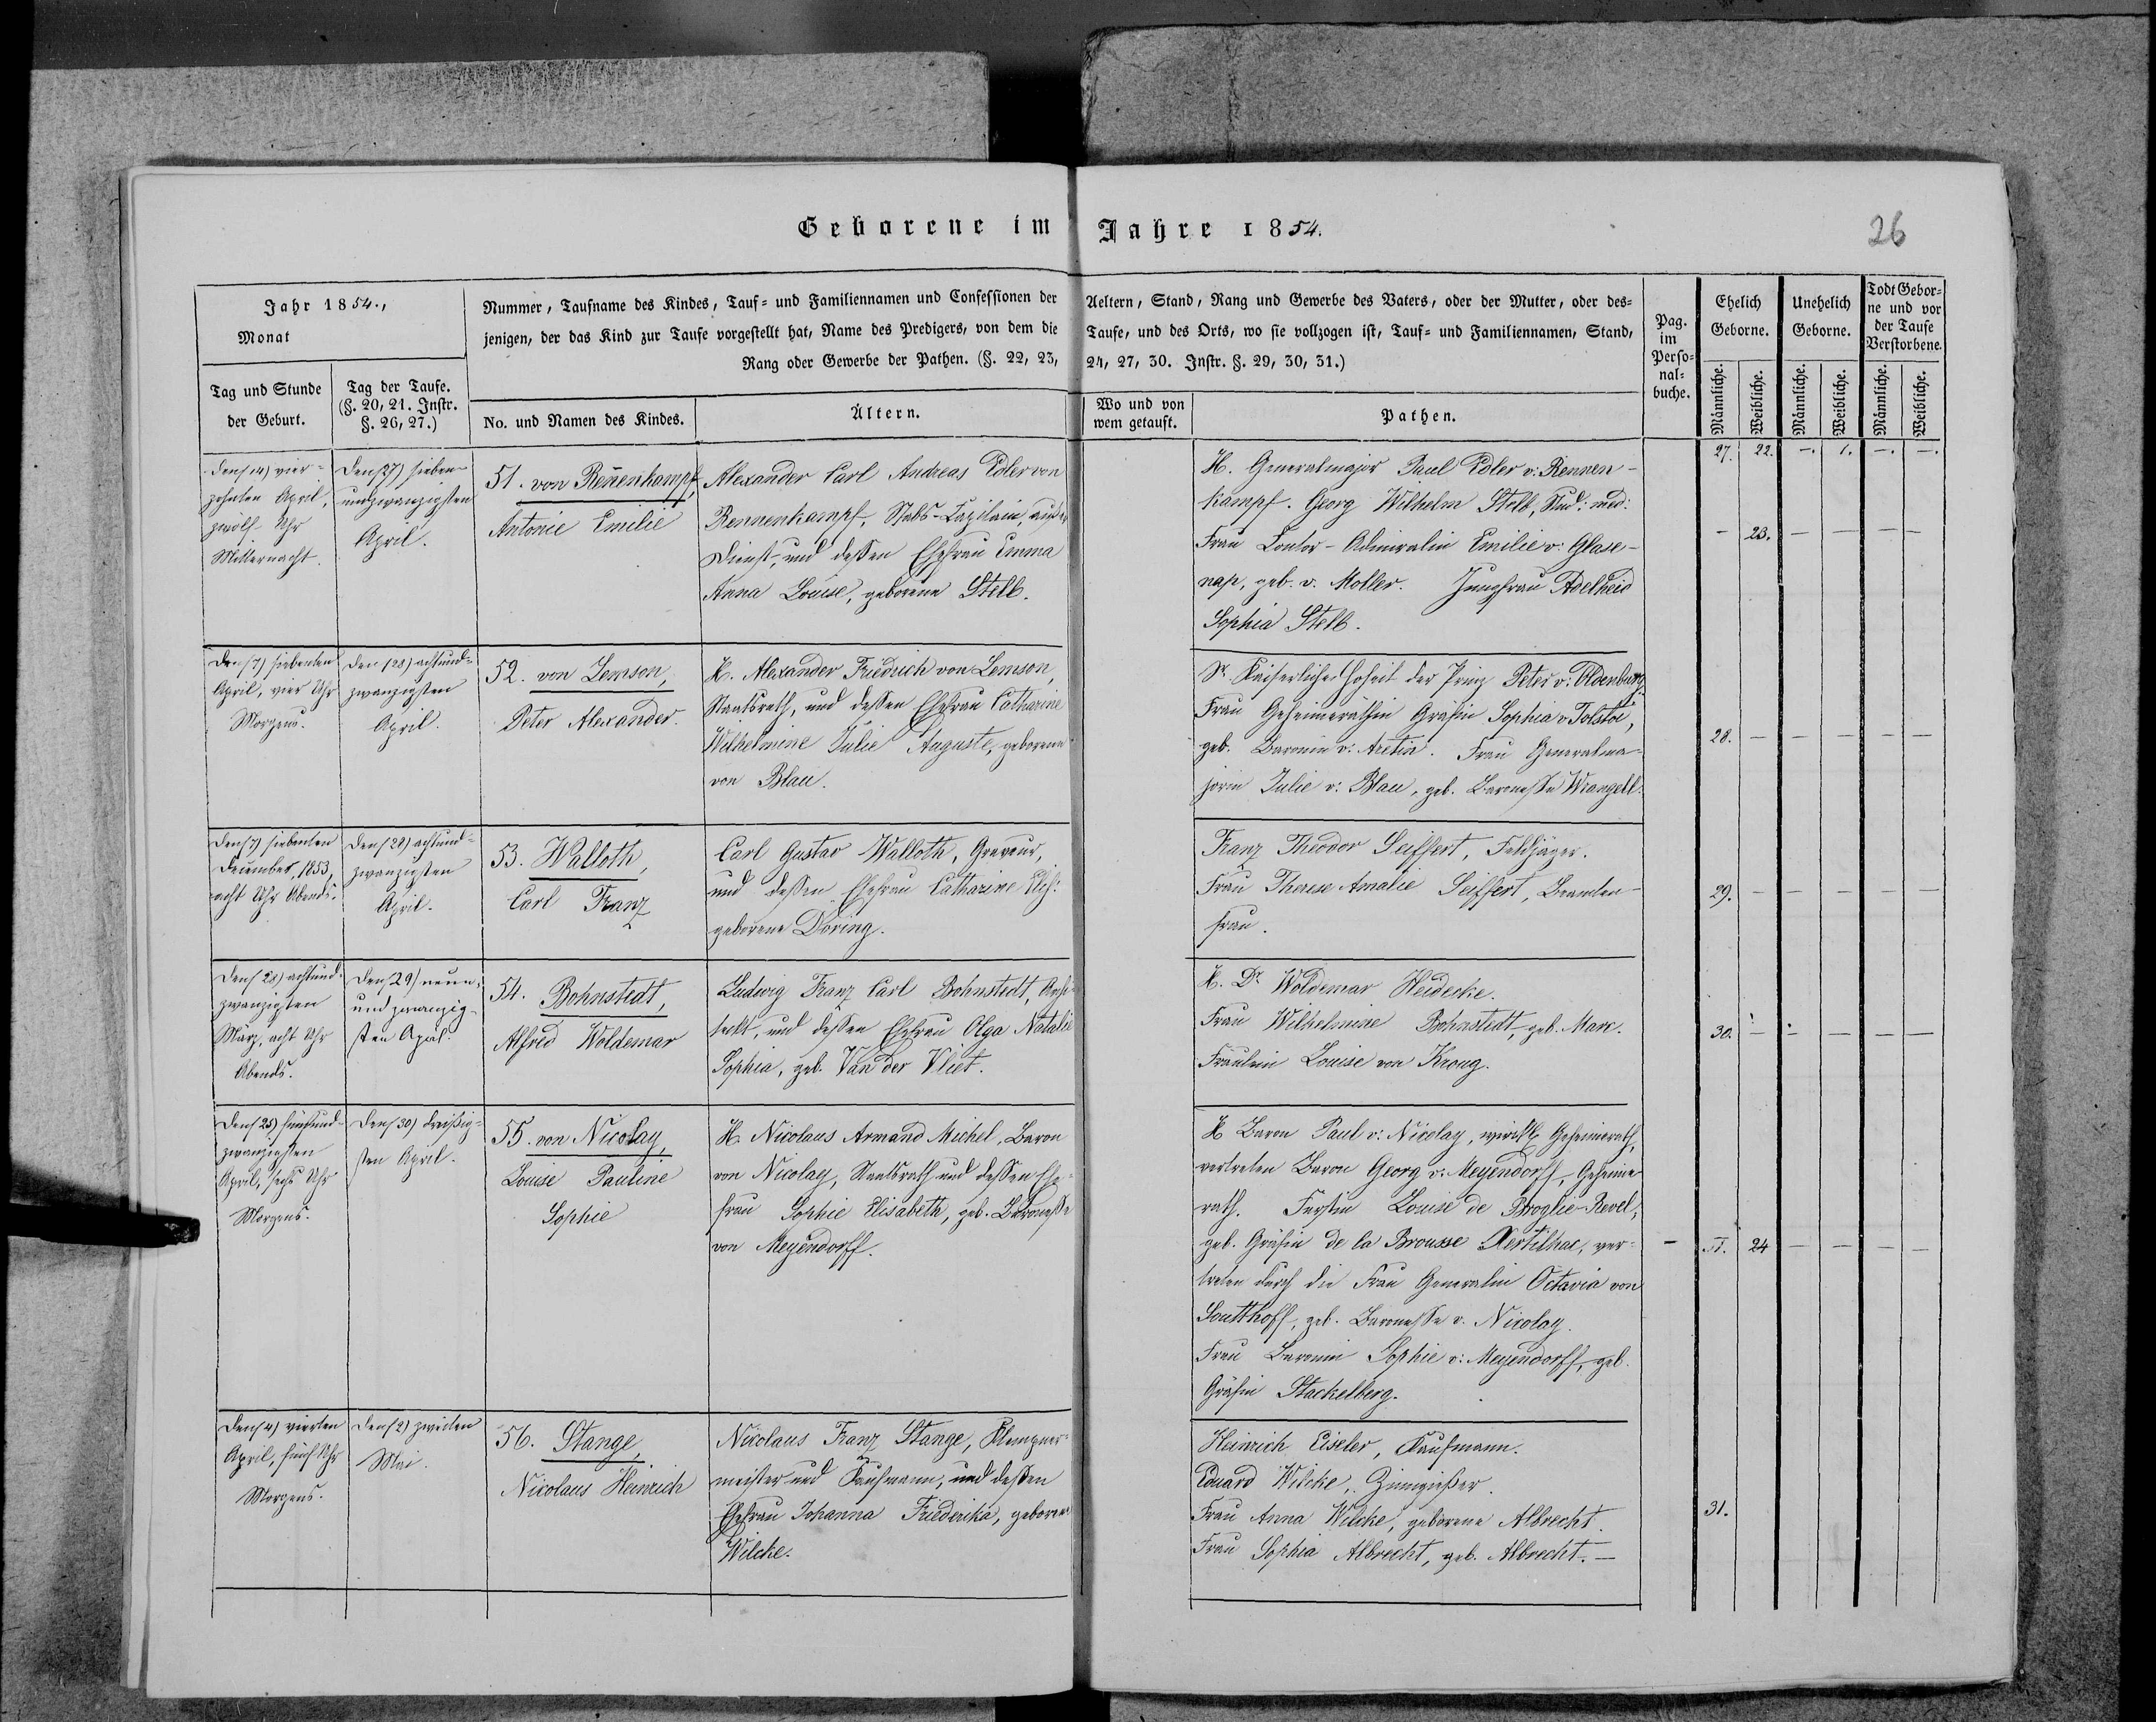 Geborene im Jahre 1854.
26
Jahr 1854.,
Monat
Tag und Stunde
der Geburt.
Tag der Taufe.
(§. 20, 21. Instr.
§. 26, 27.)
Nummer, Taufname des Kindes, Tauf- und Familiennamen und Confessionen der Aeltern, Stand, Rang und Gewerbe des Vaters, oder der Mutter, oder des-
jenigen, der das Kind zur Taufe vorgestellt hat, Name des Predigers, von dem die Taufe, und des Orts, wo sie vollzogen ist, Tauf- und Familiennamen, Stand,
Rang oder Gewerbe der Pathen. (§. 22, 23, 24, 27, 30. Instr. §. 29, 30, 31.)
No. und Namen des Kindes.
Ältern.
Wo und von
wem getauft.
Pathen.
Pag.
im
Perso-
nal-
buche.
Ehelich
Geborne.
Unehelich
Geborne.
Todt Gebor-
ne und vor
der Taufe
Verstorbene.
Männliche.
Weibliche.
Männliche.
Weibliche.
Männliche.
Weibliche.
27. 22. —. 1. —. —.
Den (14) vier-
zehnten April,
zwölf Uhr
Mitternacht.
Den (27) sieben-
undzwanzigsten
April.
51. von Rennenkampf,
Antonie Emilie
Alexander Carl Andreas Edler von
Rennenkampf, Stabs-Capitain, außer
Dienst, und dessen Ehefrau Emma
Anna Louise, geborene Stelb.
H. Generalmajor Paul Edler v: Rennen-
kampf. Georg Wilhelm Stelb, Stud: med:
Frau Contor-Admiralin Emilie v: Glase-
nap, geb. v. Moller. Jungfrau Adelheid
Sophia Stelb.
— 23. — — — —
Den (7) siebenten
April, vier Uhr
Morgens.
Den (28) achtund-
zwanzigsten
April.
52. von Lemson,
Peter Alexander.
H. Alexander Friedrich von Lemson,
Staatsrath, und dessen Ehefrau Catharine
Wilhelmine Julie Auguste, geborene
von Blau.
Sr Kaiserliche Hoheit der Prinz Peter v: Oldenburg.
Frau Geheimeräthin Gräfin Sophia v Tolstoi,
geb. Baronin v: Aretin. Frau Generalma-
jorin Julie v: Blau, geb. Baronesse Wrangell.
28. — — — — —
Den (7) siebenten
December, 1853,
acht Uhr Abends.
Den (28) achtund-
zwanzigsten
April.
53. Walloth,
Carl Franz
Carl Gustav Walloth, Graveur,
und dessen Ehefrau Catharine Elis:
geborene Döring.
Franz Theodor Seiffert, Feldjäger.
Frau Therese Amalie Seiffert, Beamten-
frau.
29. — — — — —
Den (28) achtund-
zwanzigsten
März, acht Uhr
Abends.
Den (29) neun-
und zwanzig-
sten April.
54. Bohnstedt,
Alfred Woldemar
Ludwig Franz Carl Bohnstedt, Archi-
tekt, und dessen Ehefrau Olga Natalie
Sophia, geb. Van der Vliet.
H. Dr Woldemar Heidecke.
Frau Wilhelmine Bohnstedt, geb. Marc.
Fräulein Louise von Kroug.
30. — — — — —
Den (25) fünfund-
zwanzigsten
April, sechs Uhr
Morgens.
Den (30) dreißig-
sten April.
55. von Nicolay,
Louise Pauline
Sophie
H. Nicolaus Armand Michel, Baron
von Nicolay, Staatsrath und dessen Ehe-
frau Sophie Elisabeth, geb. Baronesse
von Meyendorff.
H Baron Paul v: Nicolay, wirkl. Geheimerath,
vertreten Baron Georg v: Meyendorff, Geheime
rath. Fürstin Louise de Broglie-Revel,
geb. Gräfin de la Brousse Vertilhac, ver-
treten durch die Frau Generalin Octavia von
Soutthoff, geb. Baronesse v. Nicolay.
Frau Baronin Sophie v: Meyendorff, geb.
Gräfin Stackelberg.
— 24 — — — —
Den (4) vierten
April, fünf Uhr
Morgens.
Den (2) zweiten
Mai.
56. Stange,
Nicolaus Heinrich
Nicolaus Franz Stange, Klempner-
meister und Kaufmann, und dessen
Ehefrau Johanna Friederika, geborene
Wilcke.
Heinrich Eiseler, Kaufmann.
Eduard Wilcke, Zinngießer.
Frau Anna Wilcke, geborene Albrecht.
Frau Sophia Albrecht, geb. Albrecht. —
31.